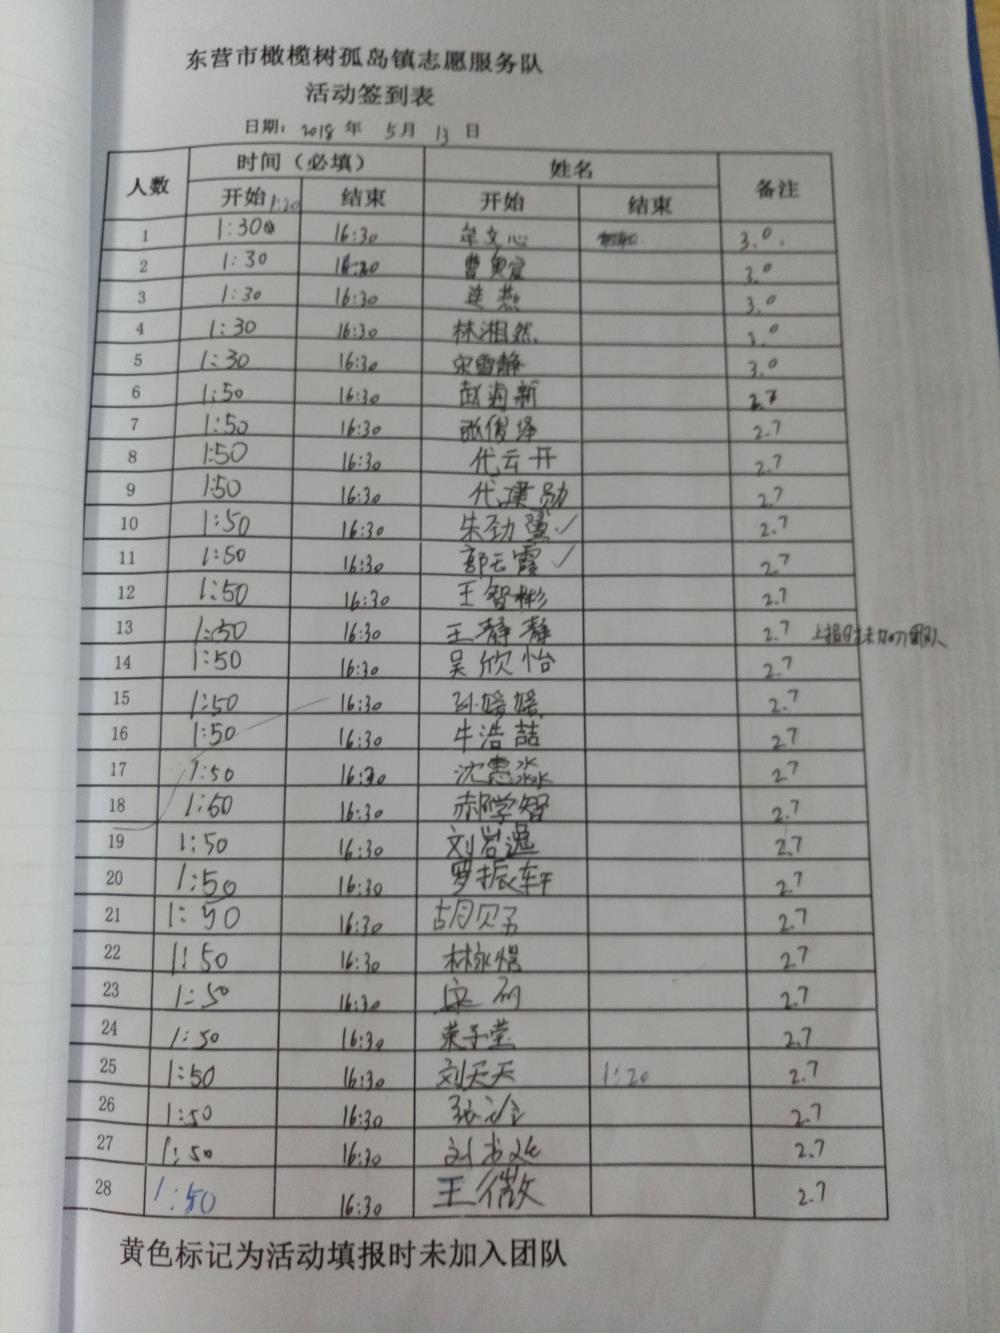 东营市橄榄树孤岛镇志愿服务队
活动签到表
日期: 2018 年 5 月 13 日
人数 时间（必填） 姓名 备注
开始 1:20 结束 开始 结束
1 1:30 16:30 牟文心 3.0
2 1:30 16:30 3.0
3 1:30 16:30 连燕 3.0
4 1:30 16:30 林湘然 3.0
5 1:30 16:30 宋雪静 3.0
6 1:50 16:30 赵海新 2.7
7 1:50 16:30 张俊泽 2.7
8 1:50 16:30 代云开 2.7
9 1:50 16:30 代建勋 2.7
10 1:50 16:30 朱劲翼 ✓ 2.7
11 1:50 16:30 郭云霞 ✓ 2.7
12 1:50 16:30 王智彬 2.7
13 1:50 16:30 王静静 2.7 上报时未加入团队
14 1:50 16:30 吴欣怡 2.7
15 1:50 16:30 孙媛媛 2.7
16 1:50 16:30 牛浩喆 2.7
17 1:50 16:30 沈惠淼 2.7
18 1:50 16:30 郝学智 2.7
19 1:50 16:30 刘岩逸 2.7
20 1:50 16:30 罗振轩 2.7
21 1:50 16:30 胡贝 2.7
22 1:50 16:30 林永 2.7
23 1:50 16:30 2.7
24 1:50 16:30 荣子莹 2.7
25 1:50 16:30 刘天天 1:20 2.7
26 1:50 16:30 张 2.7
27 1:50 16:30 刘 2.7
28 1:50 16:30 王微 2.7
黄色标记为活动填报时未加入团队